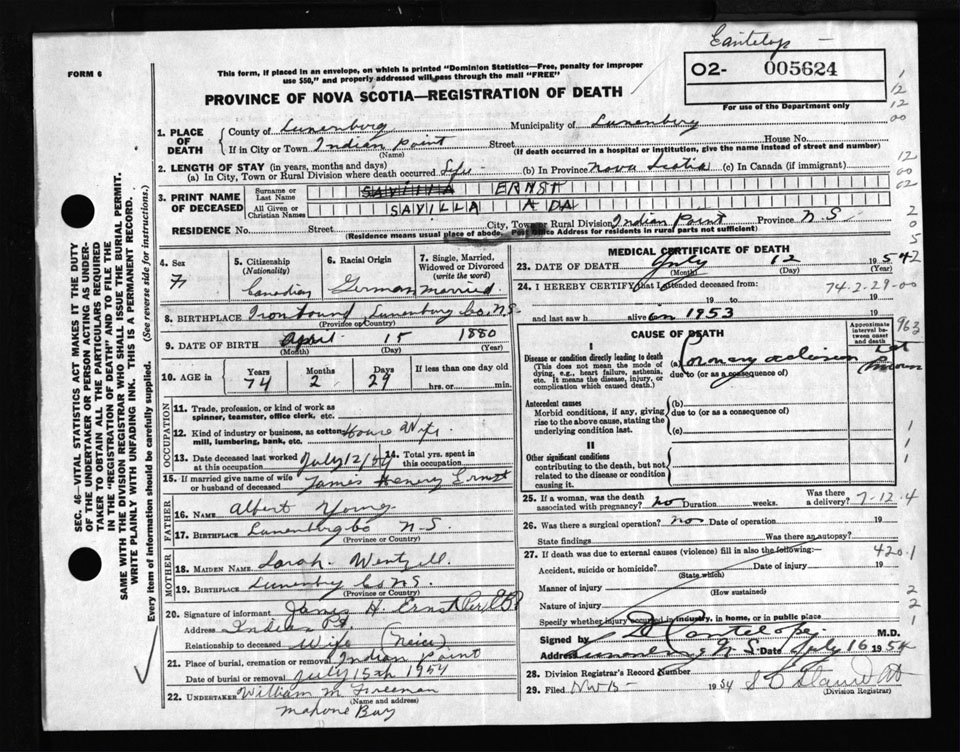 Cantelop
FORM 6
This form, if placed in an envelope, on which is printed "Dominion Statistics—Free, penalty for improper
use $50," and properly addressed will pass through the mail "FREE"
O2- 005624
PROVINCE OF NOVA SCOTIA—REGISTRATION OF DEATH
For use of the Department only
1. PLACE OF DEATH
County of Lunenburg Municipality of Lunenburg
If in City or Town Indian Point Street House No.
(Name) (If death occurred in a hospital or institution, give the name instead of street and number)
2. LENGTH OF STAY (in years, months and days)
(a) In City, Town or Rural Division where death occurred Life (b) In Province Nova Scotia (c) In Canada (if immigrant)
3. PRINT NAME OF DECEASED
Surname or Last Name SAVILLA ERNST
All Given or Christian Names SAVILLA ADA
RESIDENCE No. Street City, Town or Rural Division Indian Point Province N.S.
(Residence means usual place of abode. Post Office Address for residents in rural parts not sufficient)
4. Sex F
5. Citizenship (Nationality) Canadian
6. Racial Origin German
7. Single, Married, Widowed or Divorced (write the word) married
8. BIRTHPLACE Lunenburg Co. N.S.
(Province or Country)
9. DATE OF BIRTH April 15 1880
(Month) (Day) (Year)
10. AGE in Years Months Days If less than one day
74 2 29 hrs. or min.
OCCUPATION
11. Trade, profession, or kind of work as
spinner, teamster, office clerk, etc.
12. Kind of industry or business, as cotton
mill, lumbering, bank, etc. House Wife
13. Date deceased last worked at this occupation July 12/54
14. Total yrs. spent in this occupation
15. If married give name of wife
or husband of deceased James Henry Ernst
FATHER
16. NAME Albert Young
17. BIRTHPLACE Lunenburg Co N.S.
(Province or Country)
MOTHER
18. MAIDEN NAME Sarah Wentzell
19. BIRTHPLACE Lunenburg Co N.S.
(Province or Country)
20. Signature of informant James H. Ernst
Address Indian Pt.
Relationship to deceased Wife (Neice)
21. Place of burial, cremation or removal Indian Point
Date of burial or removal July 15th 1954
22. UNDERTAKER William M Freeman
(Name and address)
Mahone Bay
MEDICAL CERTIFICATE OF DEATH
23. DATE OF DEATH July 12 1954
(Month) (Day) (Year)
24. I HEREBY CERTIFY that I attended deceased from: 74-2-29-00
19 to 19
and last saw h alive on 1953 19
CAUSE OF DEATH
Approximate interval between onset and death
I
Disease or condition directly leading to death (a) Coronary occlusion
(This does not mean the mode of due to (or as a consequence of)
dying, e.g., heart failure, asthenia,
etc. It means the disease, injury, or
complication which caused death.)
Antecedent causes (b)
Morbid conditions, if any, giving due to (or as a consequence of)
rise to the above cause, stating the
underlying condition last. (c)
II
Other significant conditions
contributing to the death, but not
related to the disease or condition
causing it.
25. If a woman, was the death Was there
associated with pregnancy? no Duration weeks. a delivery? 7-12-4
26. Was there a surgical operation? no Date of operation 19
State findings Was there an autopsy?
27. If death was due to external causes (violence) fill in also the following: 420.1
Accident, suicide or homicide? Date of injury 19
(State which)
Manner of injury
(How sustained)
Nature of injury
Specify whether injury occurred in industry, in home, or in public place
Signed by Cantelope M.D.
Address Lunenburg N.S. Date July 16 1954
28. Division Registrar's Record Number
29. Filed 1954
(Division Registrar)
SEC. 46—VITAL STATISTICS ACT MAKES IT THE DUTY
OF THE UNDERTAKER OR PERSON ACTING AS UNDER-
TAKER TO OBTAIN ALL THE PARTICULARS REQUIRED
IN THE "REGISTRATION OF DEATH" AND TO FILE THE
SAME WITH THE DIVISION REGISTRAR WHO SHALL ISSUE THE BURIAL PERMIT.
WRITE PLAINLY WITH UNFADING INK. THIS IS A PERMANENT RECORD.
Every item of information should be carefully supplied. (See reverse side for instructions.)